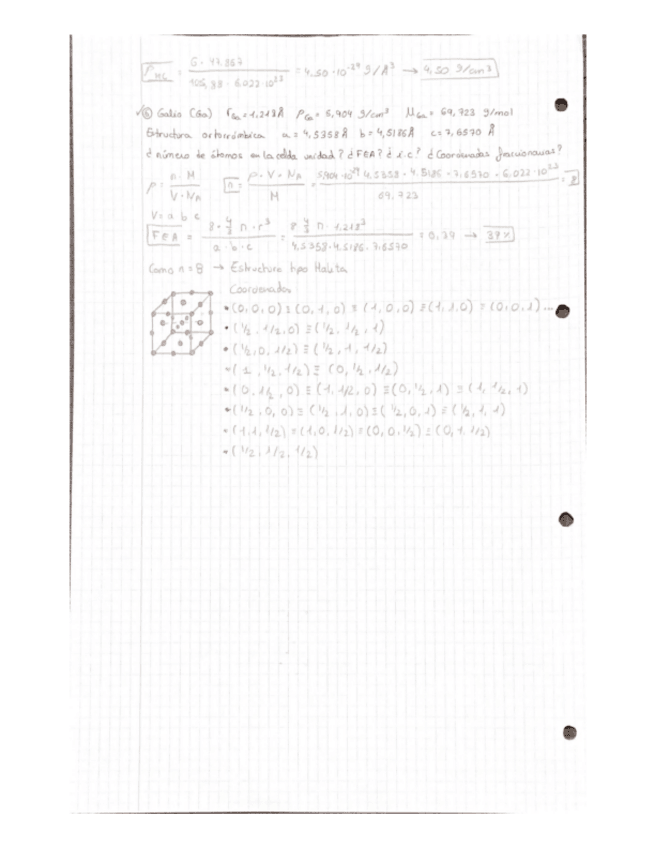 ρHC = 6 · 47,867 / 106,88 · 6,022·10²³ = 4,50·10⁻²⁴ g/Å³ → 4,50 g/cm³
⑥ Galio (Ga) rGa = 1,218Å ρGa = 5,904 g/cm³ MGa = 69,723 g/mol
Estructura ortorrómbica a = 4,5358Å b = 4,5186Å c = 7,6570 Å
¿número de átomos en la celda unidad? ¿FEA? ¿i.c.? ¿Coordenadas fraccionarias?
ρ = n · M / V · NA n = ρ · V · NA / M = 5,904·10⁻²⁴ · 4,5358 · 4,5186 · 7,6570 · 6,022·10²³ / 69,723 = 8
V = a b c
FEA = 8 · 4/3 π · r³ / a · b · c = 8 4/3 π · 1,218³ / 4,5358 · 4,5186 · 7,6570 = 0,39 → 37%
Como n = 8 → Estructura tipo Halita
Coordenadas
• (0,0,0) ≡ (0,1,0) ≡ (1,0,0) ≡ (1,1,0) ≡ (0,0,1) ...
• (1/2, 1/2, 0) ≡ (1/2, 1/2, 1)
• (1/2, 0, 1/2) ≡ (1/2, 1, 1/2)
• (1, 1/2, 1/2) ≡ (0, 1/2, 1/2)
• (0, 1/2, 0) ≡ (1, 1/2, 0) ≡ (0, 1/2, 1) ≡ (1, 1/2, 1)
• (1/2, 0, 0) ≡ (1/2, 1, 0) ≡ (1/2, 0, 1) ≡ (1/2, 1, 1)
• (1, 1, 1/2) ≡ (1, 0, 1/2) ≡ (0, 0, 1/2) ≡ (0, 1, 1/2)
• (1/2, 1/2, 1/2)